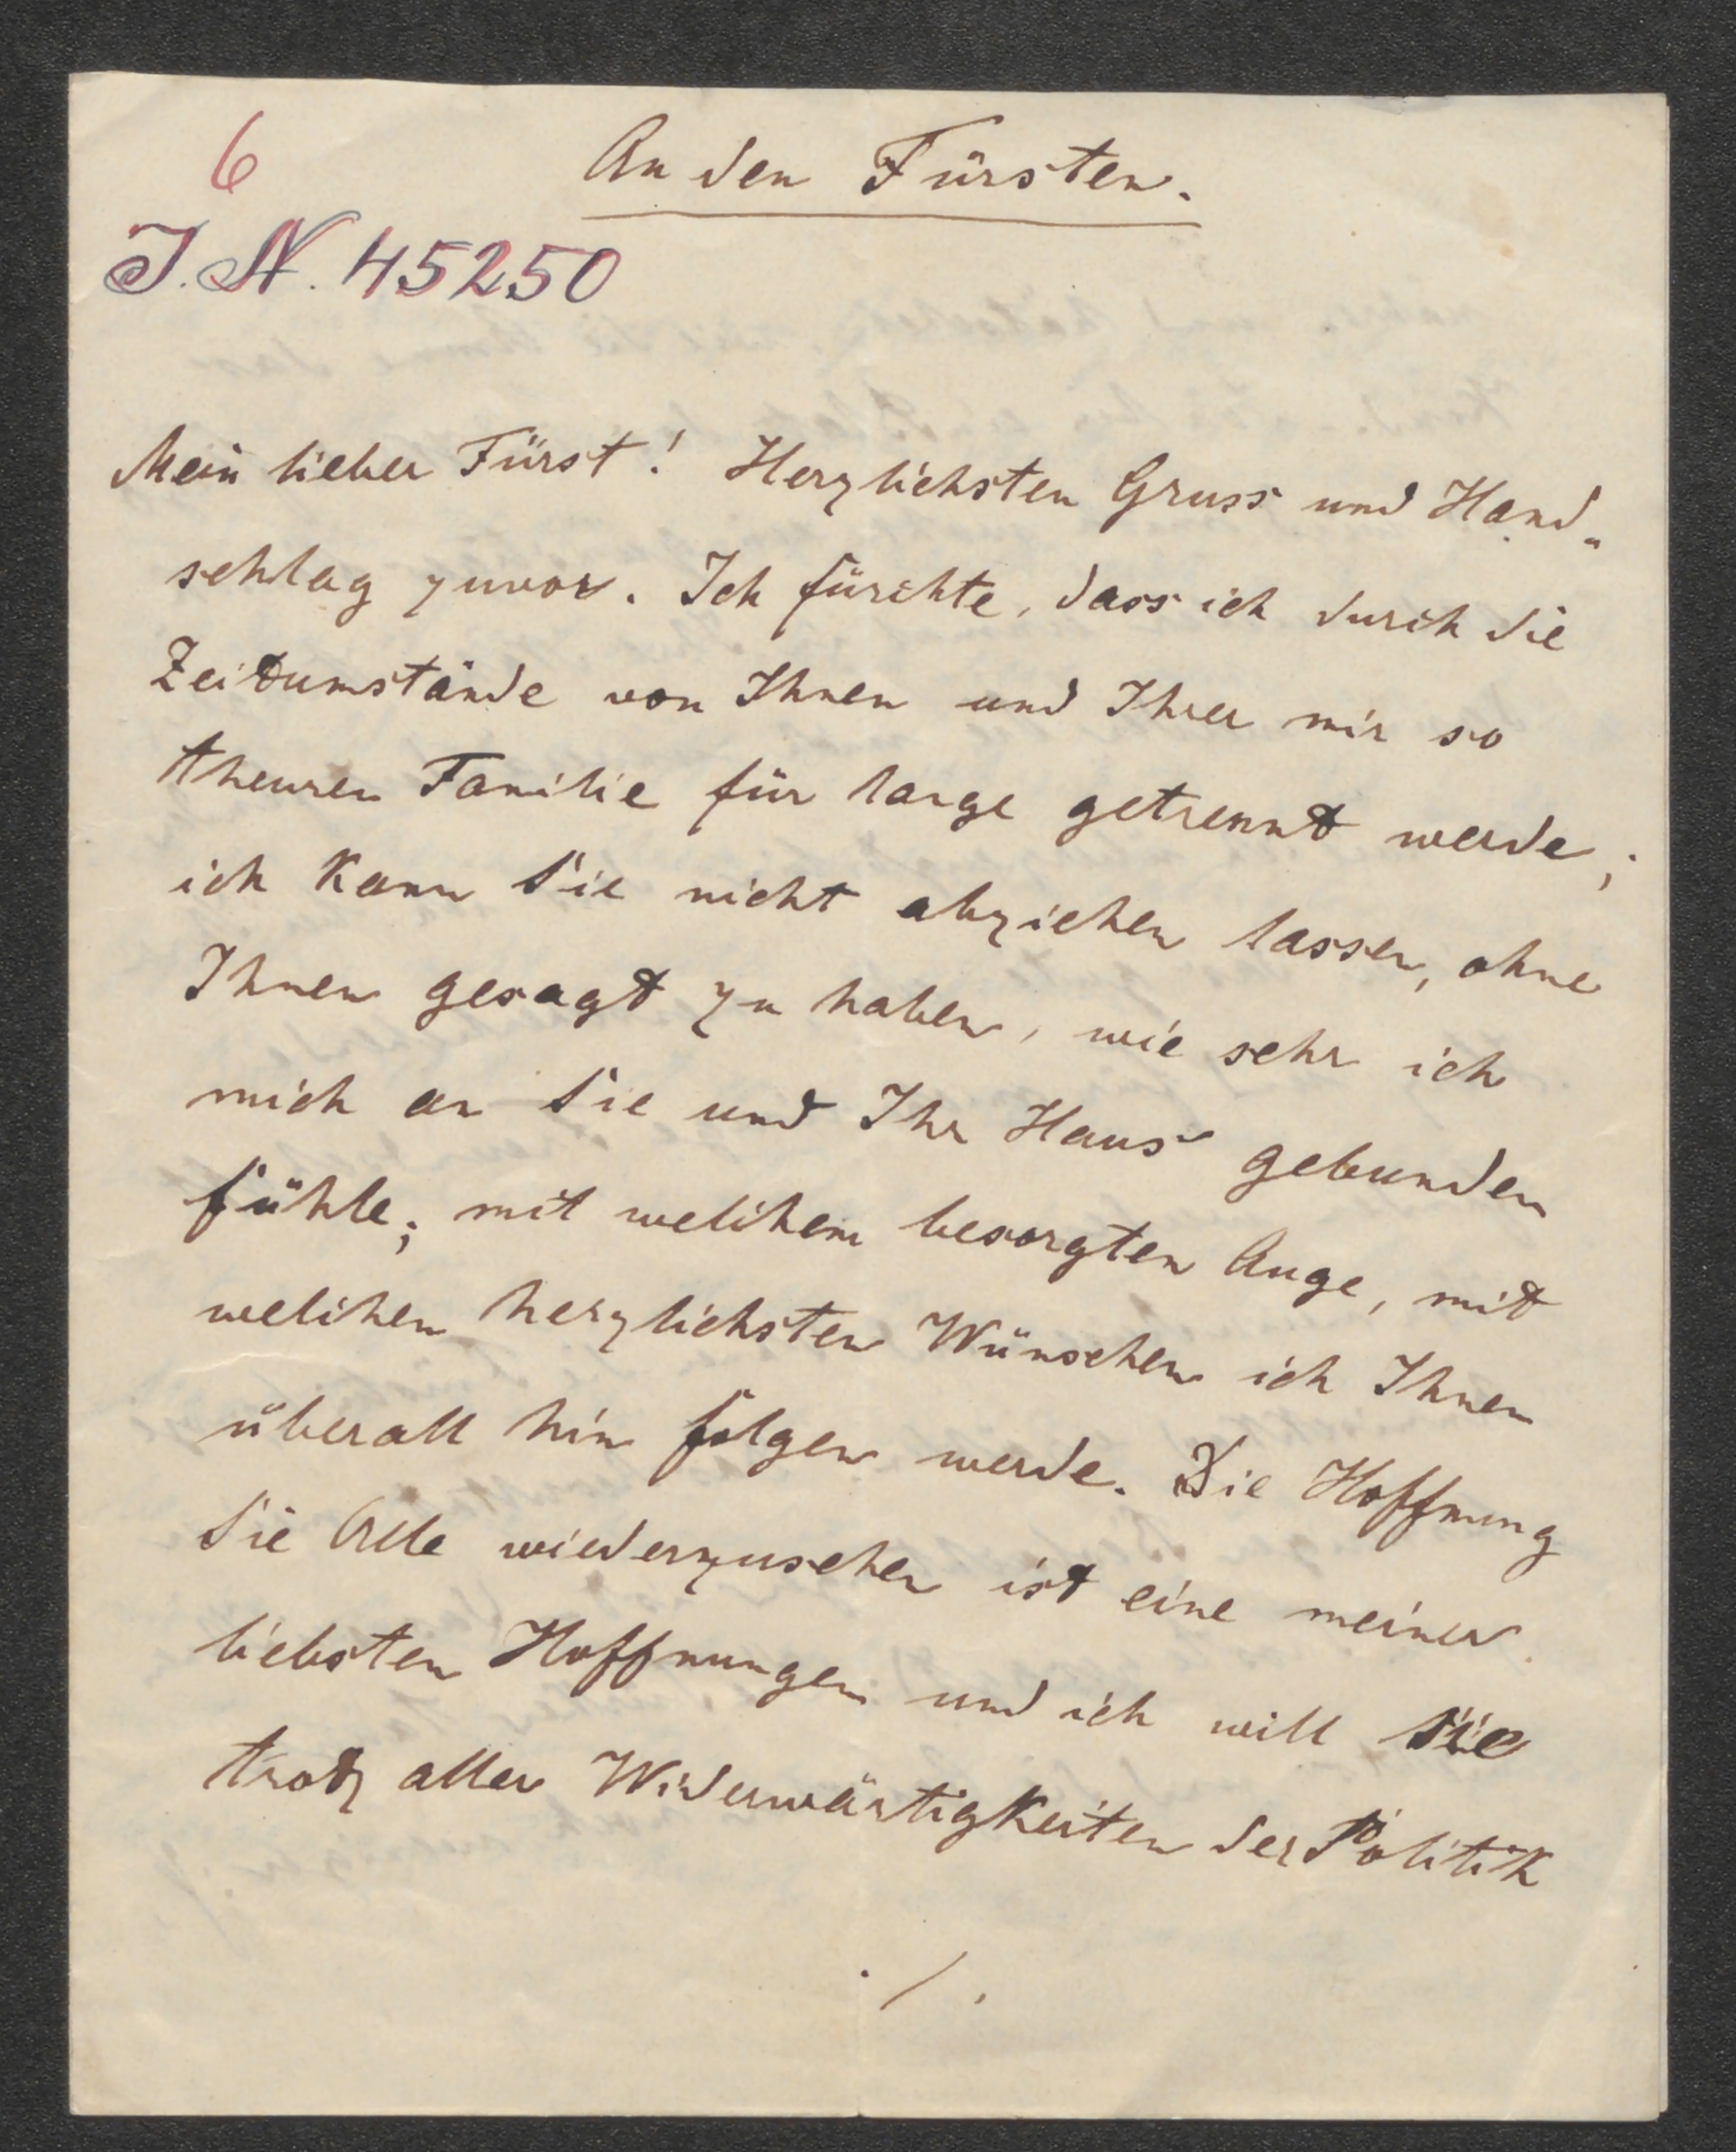 6
An den Fürsten.
J. N. 45250
Mein lieber Fürst! Herzlichsten Gruss und Hand„
schlag zuvor. Ich fürchte, dass ich durch die
Zeitumstände von Ihnen und Ihrer mir so
theuren Familie für lange getrennt werde;
ich kann Sie nicht abziehen lassen, ohne
Ihnen gesagt zu haben, wie sehr ich
mich an Sie und Ihr Haus gebunden
fühle; mit welchem besorgten Auge, mit
welchen herzlichsten Wünschen ich Ihnen
überall hin folgen werde. Die Hoffnung
Sie Alle wiederzusehen ist eine meiner
liebsten Hoffnungen und ich will sie
trotz aller Widerwärtigkeiten der Politik
./.